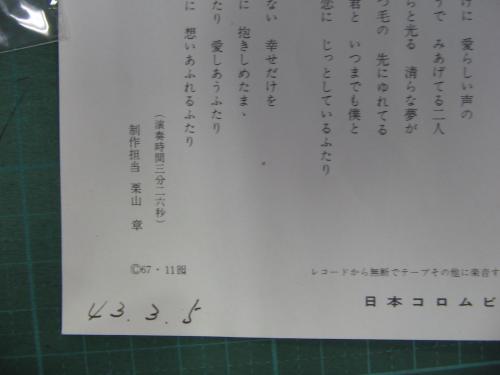 けに 愛らしい声の
うで みあげてる二人
らと光る 清らな夢が
つ毛の 先にゆれてる
君と いつまでも僕と
恋に じっとしているふたり
ない 幸せだけを
に 抱きしめたまゝ
たり 愛しあうふたり
に 想いあふれるふたり
(演奏時間三分二六秒)
制作担当 栗山 章
©67・11
レコードから無断でテープその他に
日本コロムビ
43.3.5